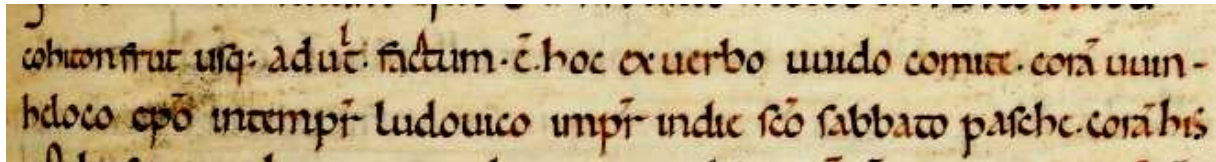 cohiton frut usq: ad ult. factum · ē. hoc ex uerbo uuido comite · corā uuin-
hdoco epō in tempr̄ ludouico impr̄ indie scō sabbato pasche. corā his